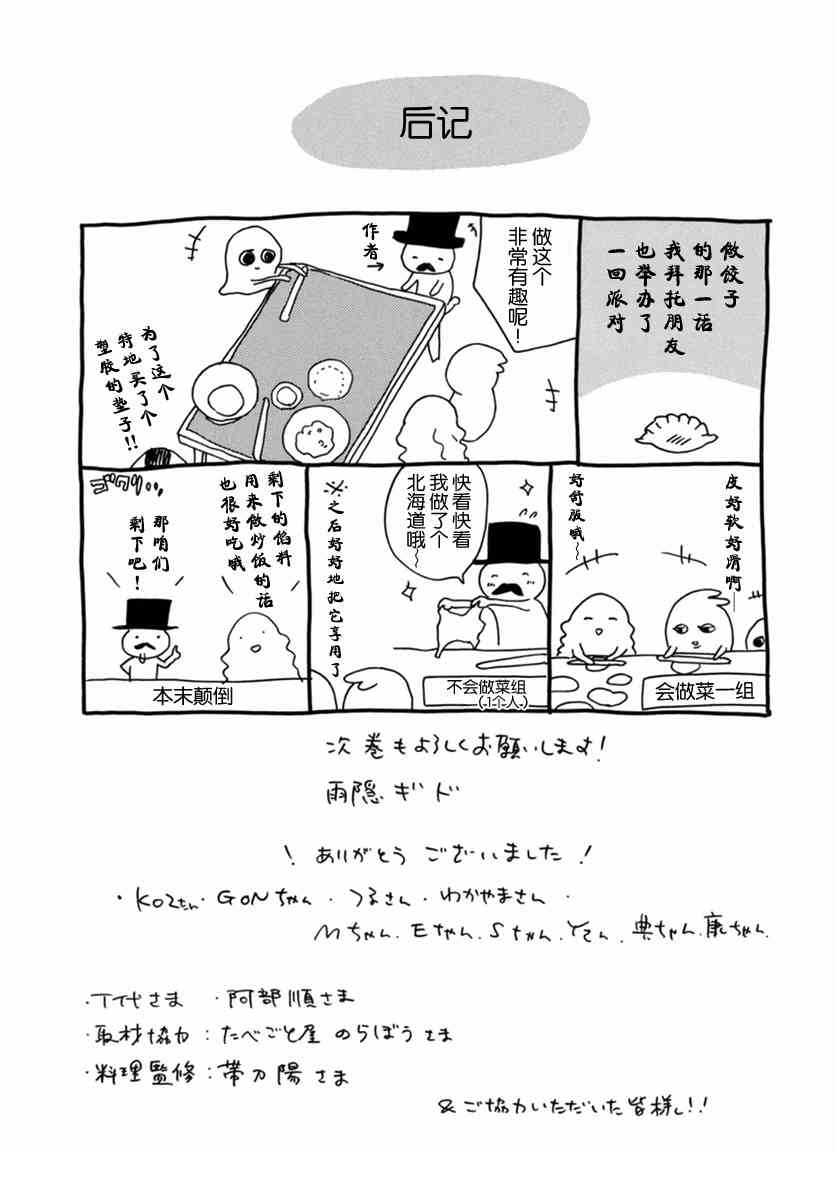 后记
做饺子
的那一话
我拜托朋友
也举办了
一回派对
做这个
非常有趣呢！
作者→
为了这个
特地买了个
塑胶的垫子!!
皮好软好滑啊——
好舒服哦～
会做菜一组
快看快看
我做了个
北海道哦～
※之后好好地把它享用了
不会做菜组
（1个人）
剩下的馅料
用来做炒饭的话
也很好吃哦
那咱们
剩下吧！
ゴクリッ
本末颠倒
次巻もよろしくお願いします！
雨隠ギド
！ありがとうございました！
・KOZたん・GONちゃん・つるさん・わかやまさん・
Mちゃん．Eちゃん．Sちゃん．Yさん．典ちゃん．康ちゃん．
・T代さま ・阿部順さま
・取材協力：たべごと屋 のらぼうさま
・料理監修：帯刀陽さま
&ご協力いただいた皆様し!!